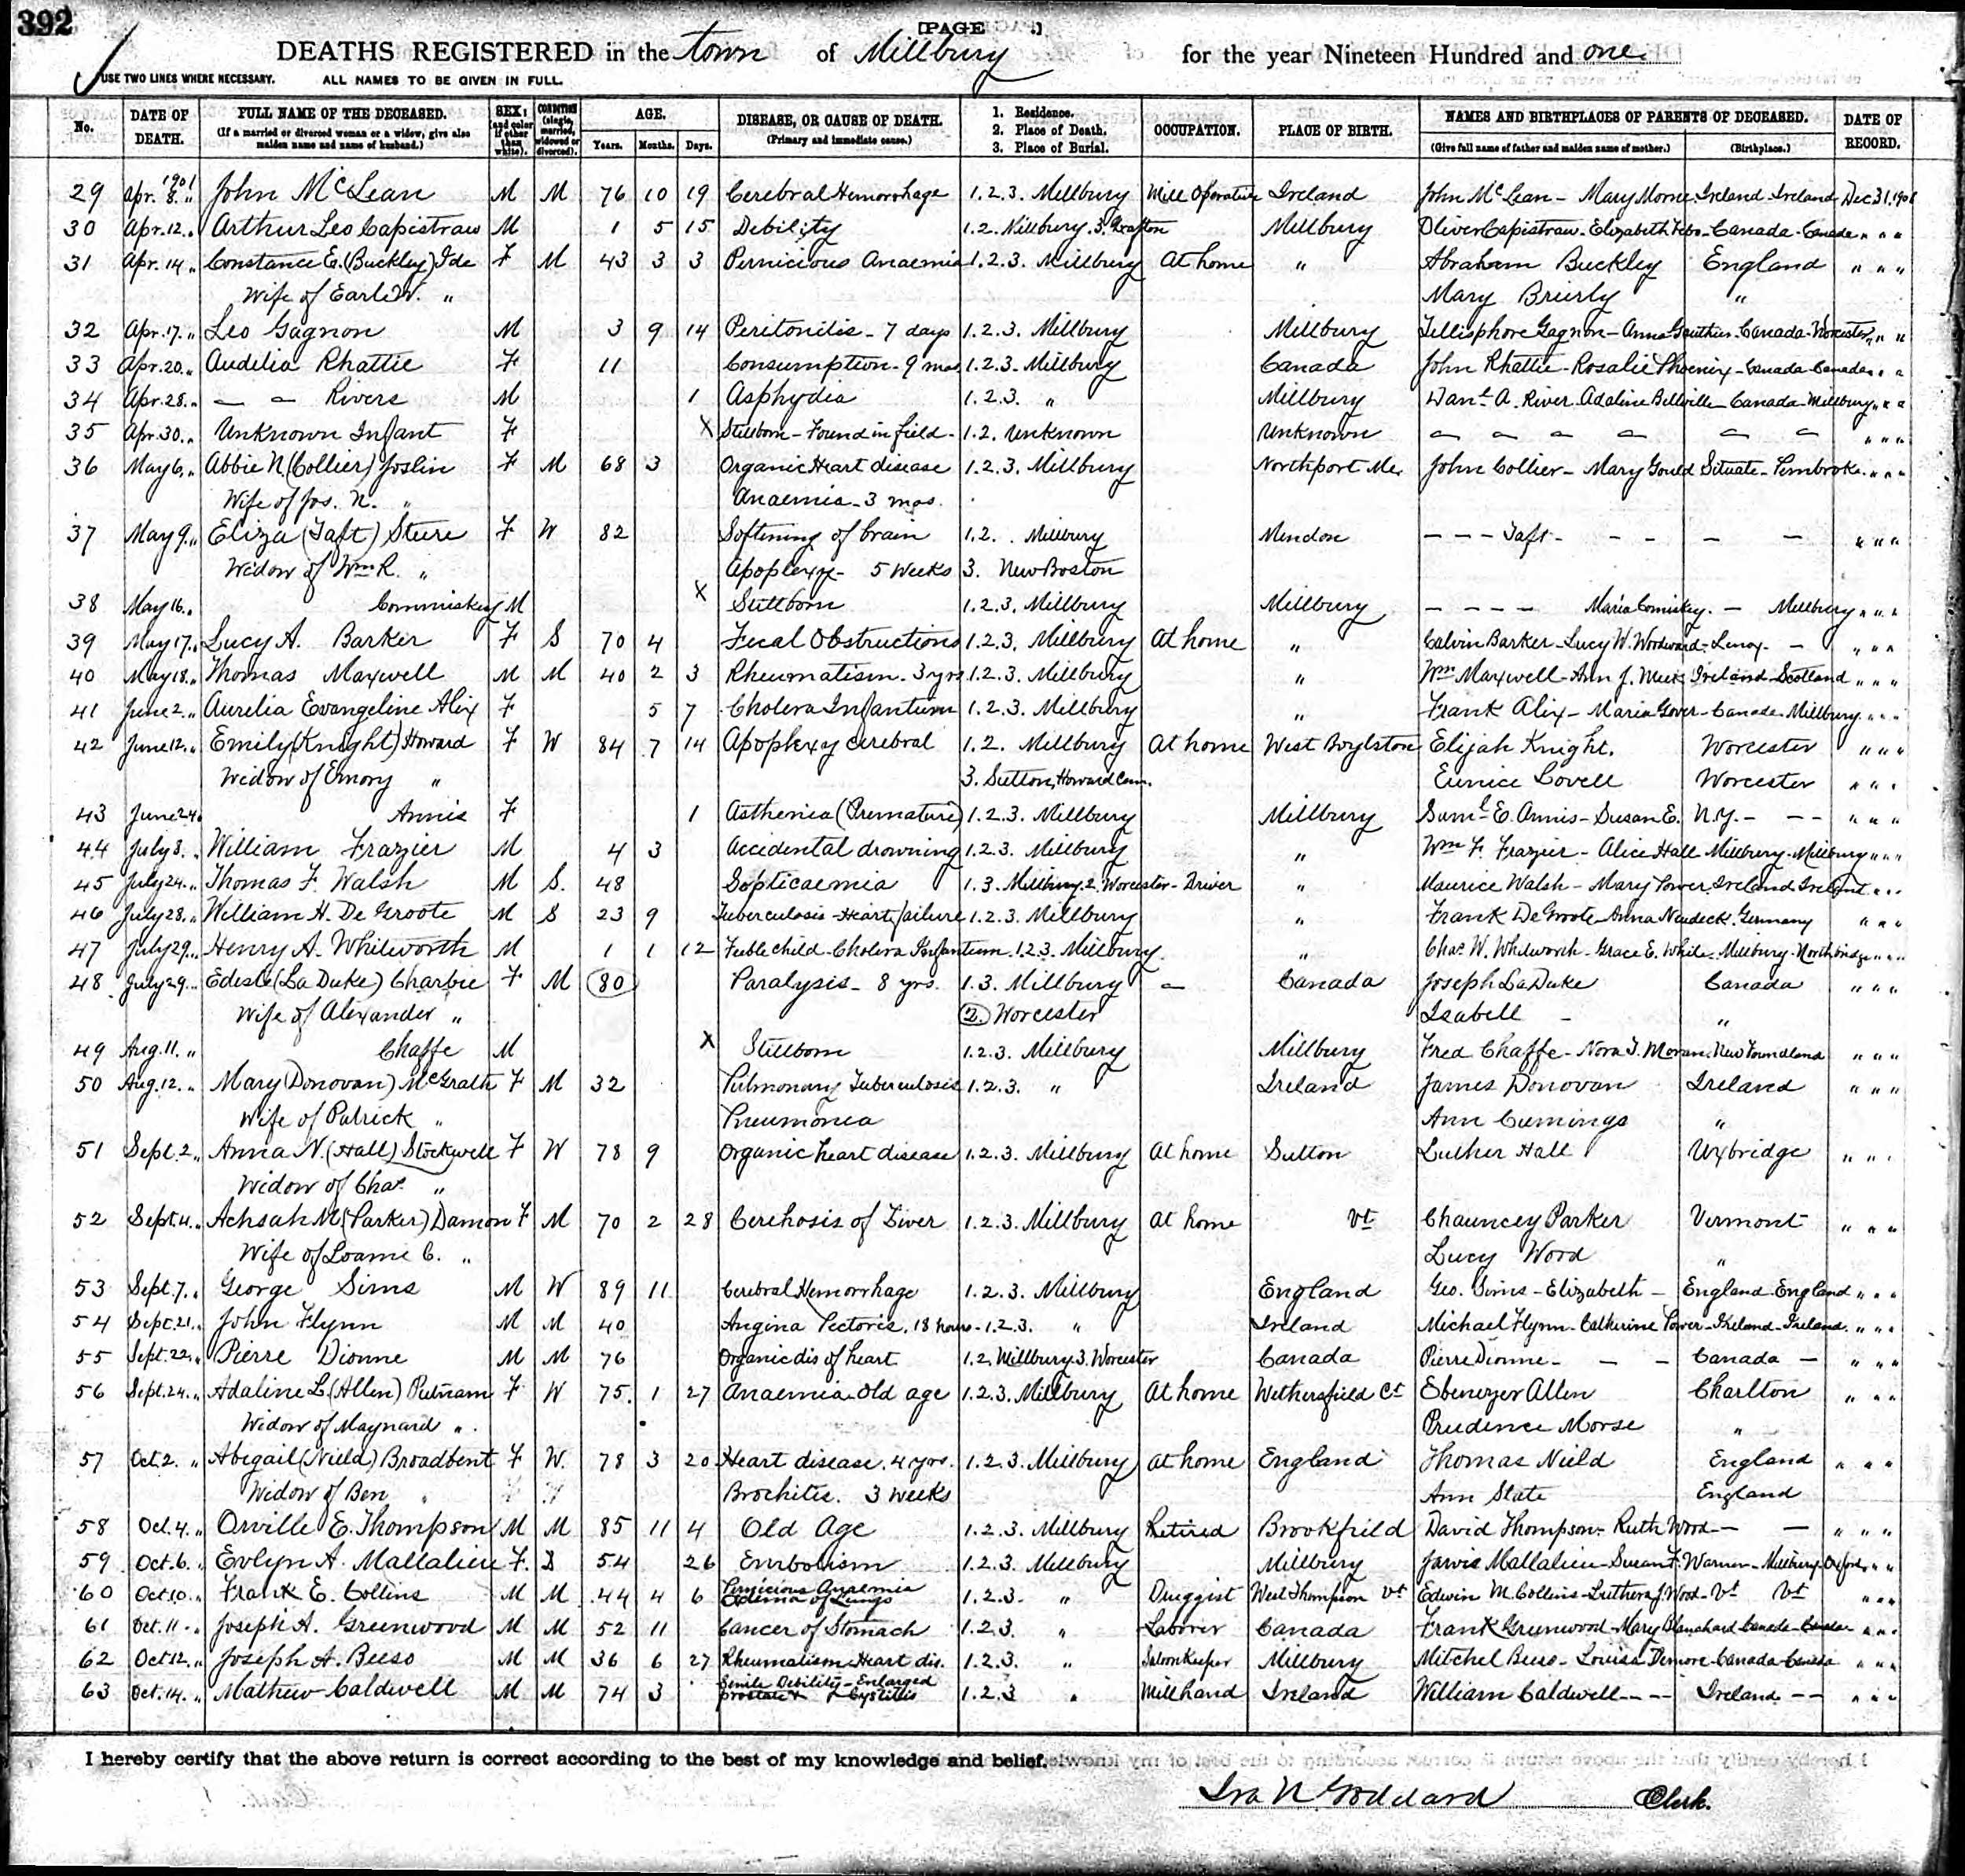 392
[PAGE .]
DEATHS REGISTERED in the town of Millbury for the year Nineteen Hundred and one.
USE TWO LINES WHERE NECESSARY. ALL NAMES TO BE GIVEN IN FULL.
No. DATE OF DEATH. FULL NAME OF THE DECEASED. (If a married or divorced woman or a widow, give also maiden name and name of husband.) SEX; (and color if other than white). CONDITION (single, married, widowed or divorced). AGE. Years. Months. Days. DISEASE, OR CAUSE OF DEATH. (Primary and immediate cause.) 1. Residence. 2. Place of Death. 3. Place of Burial. OCCUPATION. PLACE OF BIRTH. NAMES AND BIRTHPLACES OF PARENTS OF DECEASED. (Give full name of father and maiden name of mother.) (Birthplace.) DATE OF RECORD.
29 1901 Apr. 8. " John McLean M M 76 10 19 Cerebral Hemorrhage 1.2.3. Millbury Mill Operative Ireland John McLean - Mary Ireland Ireland Dec 31. 1901
30 Apr. 12. " Arthur Leo Capistraw M 1 5 15 Debility 1.2. Millbury. 3. Grafton Millbury Oliver Capistraw - Elizabeth - Canada - Canada " " "
31 Apr. 14. " Constance E. (Buckley) Ide F M 43 3 3 Pernicious Anaemia 1.2.3. Millbury At home " Abraham Buckley England " " "
Wife of Earle W. " Mary Brierly "
32 Apr. 17. " Leo Gagnon M 3 9 14 Peritonitis - 7 days 1.2.3. Millbury Millbury Tellisphore Gagnon - Anna Gauthier - Canada - Worcester " " "
33 Apr. 20. " Audelia Rhattie F 11 Consumption - 9 mos 1.2.3. Millbury Canada John Rhattie - Rosalie Phoenix - Canada - Canada " "
34 Apr. 28. " - - Rivers M 1 Asphyxia 1.2.3. " Millbury Danl A. River Adaline Bellville - Canada - Millbury " " "
35 Apr. 30. " Unknown Infant F X Stillborn - Found in field - 1.2. Unknown Unknown - - - - - - " " "
36 May 6. " Abbie N. (Collier) Joslin F M 68 3 Organic Heart disease 1.2.3. Millbury Northport Me. John Collier - Mary Gould Situate - Pembroke " " "
Wife of Jos. N. " Anaemia - 3 mos.
37 May 9. " Eliza (Taft) Steere F W 82 Softening of brain 1.2. Millbury Mendon - - - Taft - - - - - " " "
Widow of Wm R. " Apoplexy - 5 Weeks 3. New Boston
38 May 16. " Commiskey M X Stillborn 1.2.3. Millbury Millbury - - - - Maria Comiskey. - Millbury " " "
39 May 17. " Lucy A. Barker F S 70 4 Fecal Obstructions 1.2.3. Millbury At home " Calvin Barker - Lucy W. Woodward - - " " "
40 May 18. " Thomas Maxwell M M 40 2 3 Rheumatism - 3 yrs 1.2.3. Millbury " Wm Maxwell - Ann J. Meek Ireland - Scotland " " "
41 June 2. " Aurelia Evangeline Alix F 5 7 Cholera Infantum 1.2.3. Millbury " Frank Alix - Maria Gover - Canada - Millbury " " "
42 June 12. " Emily (Knight) Howard F W 84 7 14 Apoplexy cerebral 1.2. Millbury At home West Boylston Elijah Knight. Worcester " " "
Widow of Emory " 3. Sutton, Howard Cem. Eunice Lovell Worcester " " "
43 June 24. Annis F 1 Asthenia (Premature) 1.2.3. Millbury Millbury Saml E. Annis - Susan E. N.Y. - - - " " "
44 July 3. " William Frazier M 4 3 Accidental drowning 1.2.3. Millbury " Wm F. Frazier - Alice Hall Millbury - Millbury " " "
45 July 24. " Thomas F. Walsh M S. 48 Septicaemia 1.3. Millbury. 2. Worcester - Driver " Maurice Walsh - Mary Power, Ireland Ireland " " "
46 July 28. " William H. De Groote M S 23 9 Tuberculosis - Heart failure 1.2.3. Millbury " Frank DeGroote - Anna Neudeck. Germany " " "
47 July 29. " Henry A. Whitworth M 1 1 12 Feeble child - Cholera Infantum. 1.2.3. Millbury. " Chas. W. Whitworth - Grace E. White - Millbury - Northbridge " " "
48 July 29. " Edesse (La Duke) Charbie F M 80 Paralysis - 8 yrs. 1.3. Millbury - Canada Joseph LaDuke Canada " " "
Wife of Alexander " 2. Worcester Isabell - "
49 Aug. 11. " Chaffe M X Stillborn 1.2.3. Millbury Millbury Fred Chaffe - Nora T. Moran. New Foundland " " "
50 Aug. 12. " Mary (Donovan) McGrath F M 32 Pulmonary Tuberculosis 1.2.3. " Ireland James Donovan Ireland " " "
Wife of Patrick " Pneumonia Ann Cumings "
51 Sept. 2. " Anna N. (Hall) Stockwell F W 78 9 Organic heart disease 1.2.3. Millbury At home Sutton Luther Hall Uxbridge " " "
Widow of Chas. "
52 Sept. 4. " Achsah M. (Parker) Damon F M 70 2 28 Cerehosis of Liver 1.2.3. Millbury At home Vt Chauncey Parker Vermont " " "
Wife of Loamie C. " Lucy Wood "
53 Sept. 7. " George Sims M W 89 11 Cerebral Hemorrhage 1.2.3. Millbury England Geo. Sims - Elizabeth - England - England " " "
54 Sept. 21. " John Flynn M M 40 Angina Pectoris. 18 hours - 1.2.3. " Ireland Michael Flynn - Catherine Power - Ireland - Ireland. " " "
55 Sept. 22. " Pierre Dionne M M 76 Organic dis of heart 1.2. Millbury 3. Worcester Canada Pierre Dionne - - - Canada - " " "
56 Sept. 24. " Adaline L. (Allen) Putnam F W 75. 1 27 Anaemia - Old age 1.2.3. Millbury At home Wethersfield Ct Ebenezer Allen Charlton " " "
Widow of Maynard " Prudence Morse "
57 Oct. 2. " Abigail (Nield) Broadbent F W. 78 3 20 Heart disease. 4 yrs. 1.2.3. Millbury At home England Thomas Nield England " " "
Widow of Ben " Brochitis. 3 weeks Ann Slate England
58 Oct. 4. " Orville E. Thompson M M 85 11 4 Old Age 1.2.3. Millbury Retired Brookfield David Thompson - Ruth Wood - - " " "
59 Oct. 6. " Evlyn A. Mallalieu F. S 54 26 Embolism 1.2.3. Millbury Millbury Jarvis Mallalieu - Susan F. Warner - Millbury - Oxford " "
60 Oct. 10. " Frank E. Collins M M 44 4 6 Pernicious Anaemia Edema of Lungs 1.2.3. " Druggist West Thompson Vt Edwin M. Collins - Luthera J. Wood - Vt Vt " " "
61 Oct. 11. " Joseph A. Greenwood M M 52 11 Cancer of Stomach 1.2.3. " Laborer Canada Frank Greenwood - Mary Blanchard Canada - Canada " " "
62 Oct 12. " Joseph A. Beeso M M 36 6 27 Rheumatism Heart dis. 1.2.3. " Saloon Keeper Millbury Mitchel Beeso - Louisa Demore - Canada - Canada " " "
63 Oct. 14. " Mathew Caldwell M M 74 3 Senile Debility - Enlarged prostate & Cystitis 1.2.3 " Mill hand Ireland William Caldwell - - - Ireland. - - " " "
I hereby certify that the above return is correct according to the best of my knowledge and belief.
Ira N Goddard Clerk.